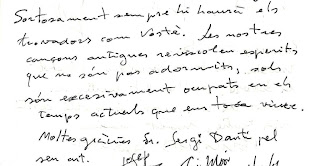 Sortosament sempre hi haurà els
trovadors com Vostè. Les nostres
cançons antigues revisculen esperits
que no són pas adormits, sols
són excesivament ocupats en els
temps actuals que ens toca viure.
Moltes gràcies Sr. Sergi Dantí pel
seu art. Josep